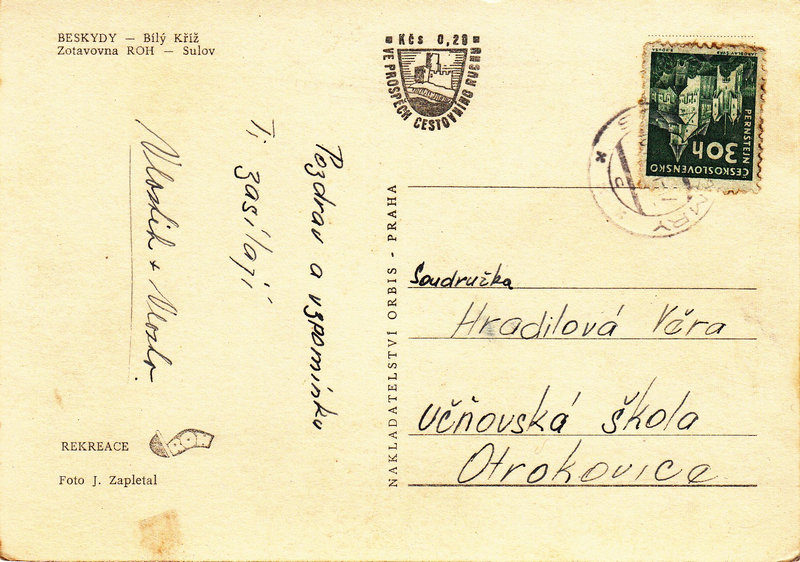 BESKYDY — Bílý Kříž
Zotavovna ROH — Sulov
Kčs 0,20
VE PROSPĚCH CESTOVNÍHO RUCHU
PERNŠTEJN
30h
ČESKOSLOVENSKO
Pozdrav a vzpomínku
Ti zasílají
Vlastík + Vlasta.
NAKLADATELSTVÍ ORBIS - PRAHA
Soudružka
Hradilová Věra
Učňovská škola
Otrokovice
REKREACE ROH
Foto J. Zapletal